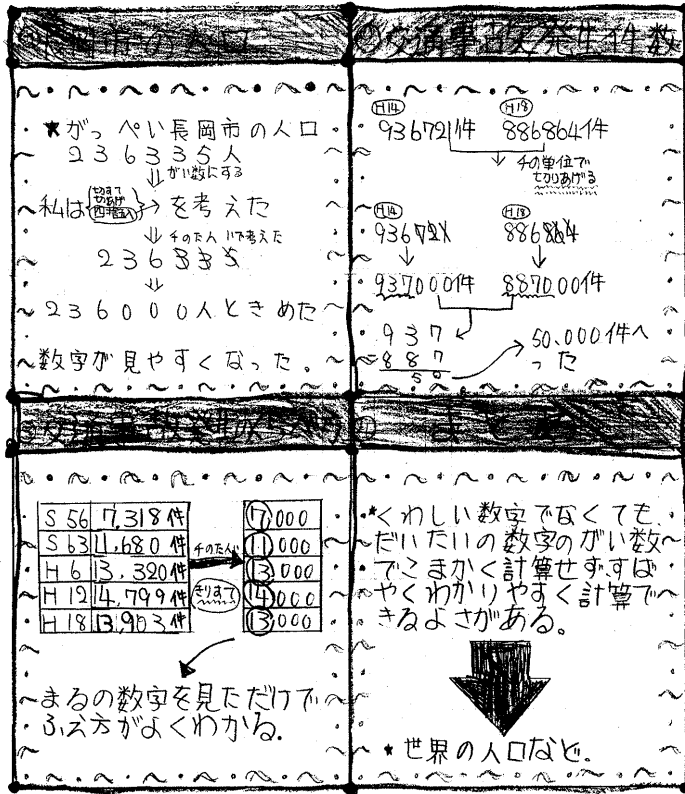 長岡市の人口
★がっぺい長岡市の人口
236335人
⇓がい数にする
私は{切すて 切あげ 四捨五入}→を考えた
⇓千のたんいで考えた
236335
⇓
236000人ときめた
数字が見やすくなった。
②交通事故発生件数
H14 H18
936721件 886864件
⇓千の単位で
切りあげる
H14 H18
936721 886864
937000件 887000件
937
-887
50
50,000件へった
S56 7,318件 → ⑦,000
S63 11,680件 ⑪,000
H6 13,320件 千のたんい ⑬,000
H12 14,799件 きりすて ⑭,000
H18 13,903件 ⑬,000
まるの数字を見ただけで
ふえ方がよくわかる.
*くわしい数字でなくても、
だいたいの数字のがい数
でこまかく計算せず、すば
やくわかりやすく計算で
きるよさがある。
★世界の人口など.